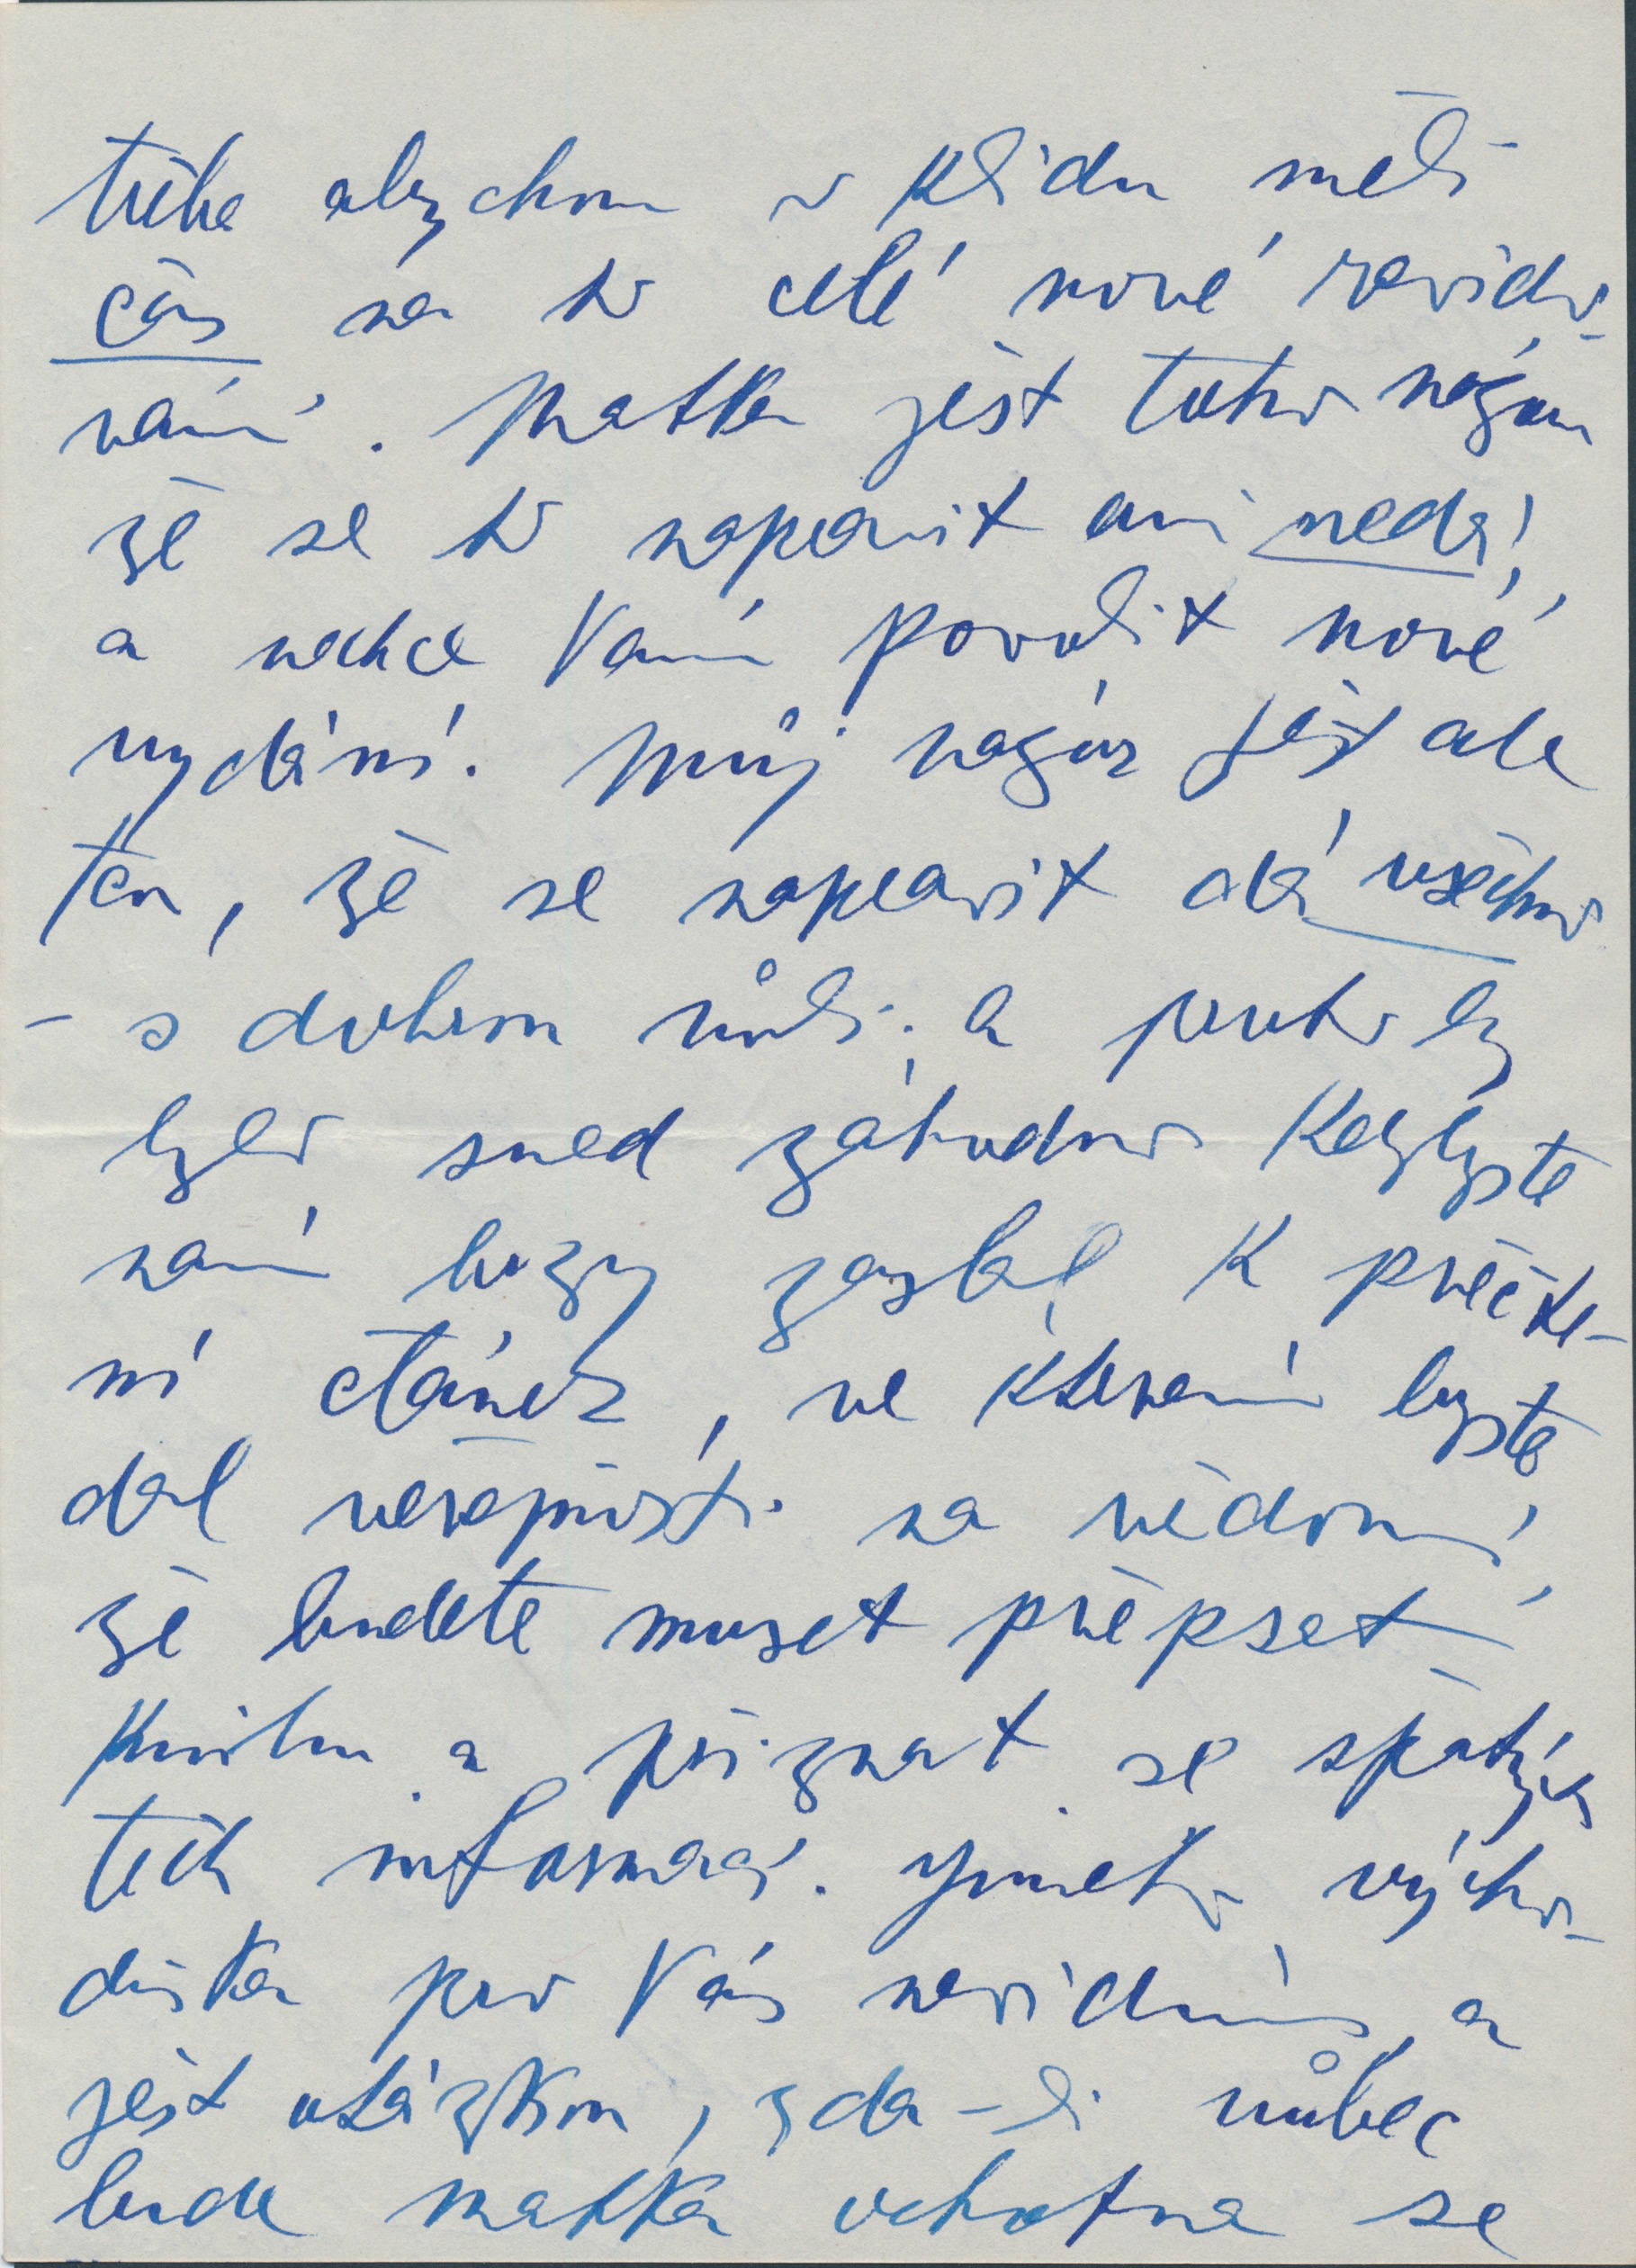 třeba abychom v klidu měli
čas na to celé nové revido-
vání. Matka jest toho názoru
že se to napravit ani nedá,
a nechce Vám povolit nové
vydání. Můj názor jest ale
ten, že se napravit dá všechno
- s dobrou vůlí; a proto by
bylo snad záhodno kdybyste
nám brzy zaslal k přečte-
ní článek, ve kterém byste
dal veřejnosti na vědomí,
že budete muset přepset
knihu a přiznat se špatných
těch informací. Jineho výcho-
diska pro Vás nevidím, a
jest otázkou, zda-li vůbec
bude matka ochotna se